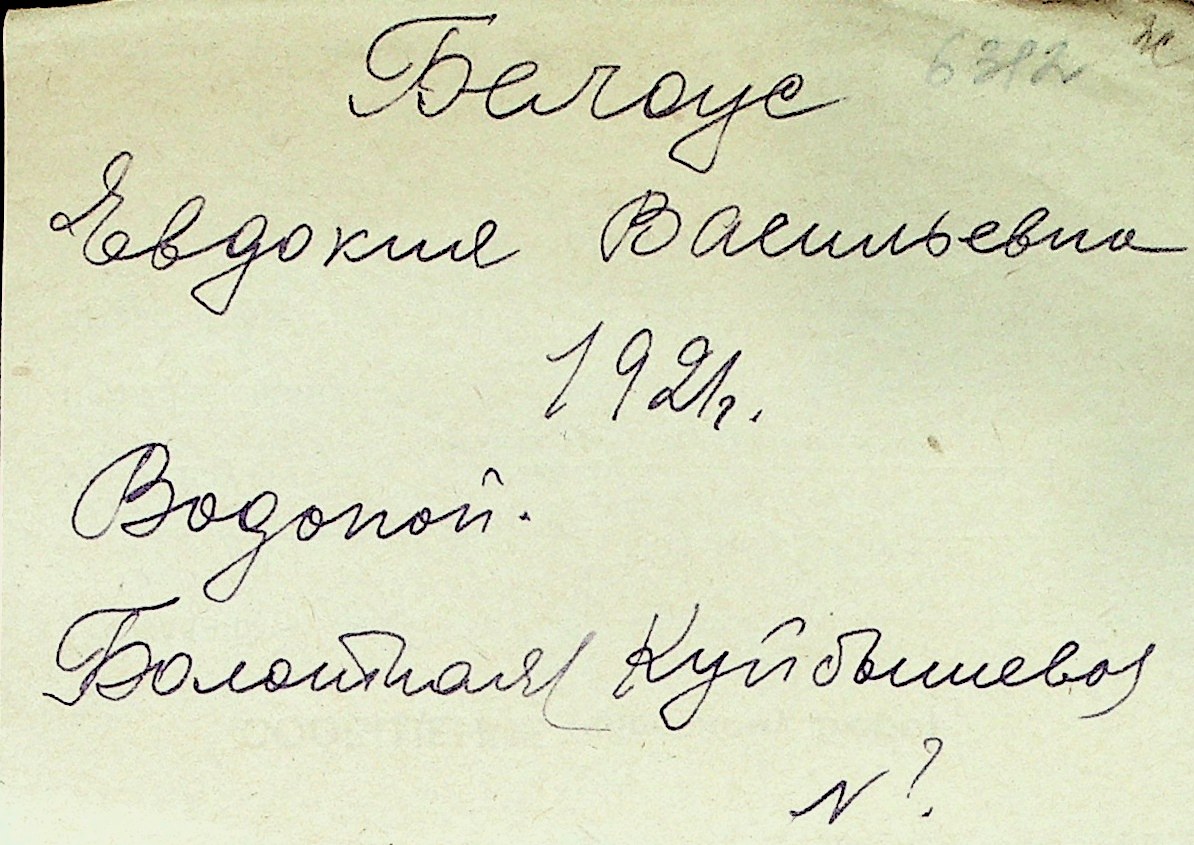 6312
Белоус
Евдокия Васильевна
1921г.
Водопой.
Болотная (Куйбышева)
N?